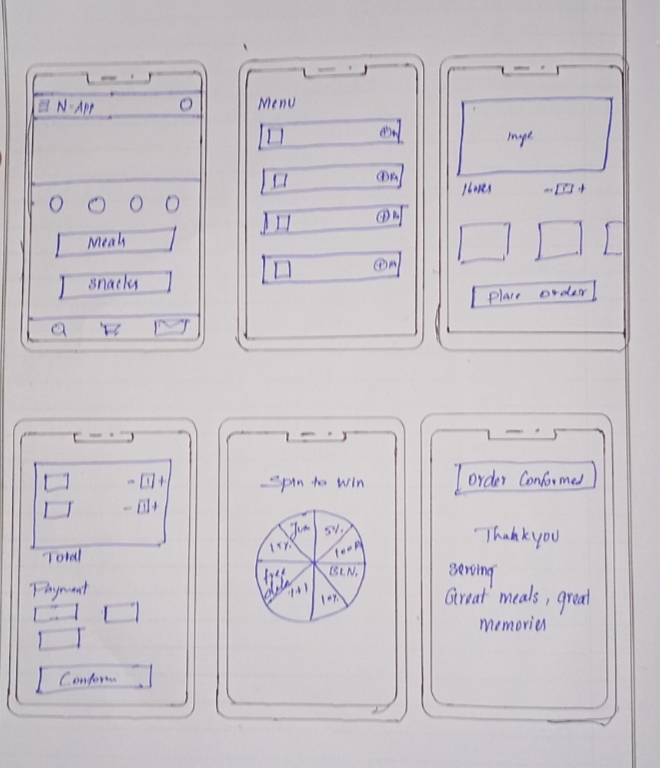 N-App
Meals
Snacks
Menu
- 1 +
Place order
- 1 +
- 1 +
Total
Payment
Conform
Spin to win
5%
15%
free
1+1
10%
Order Conformed
Thankyou
serving
Great meals, great
memories